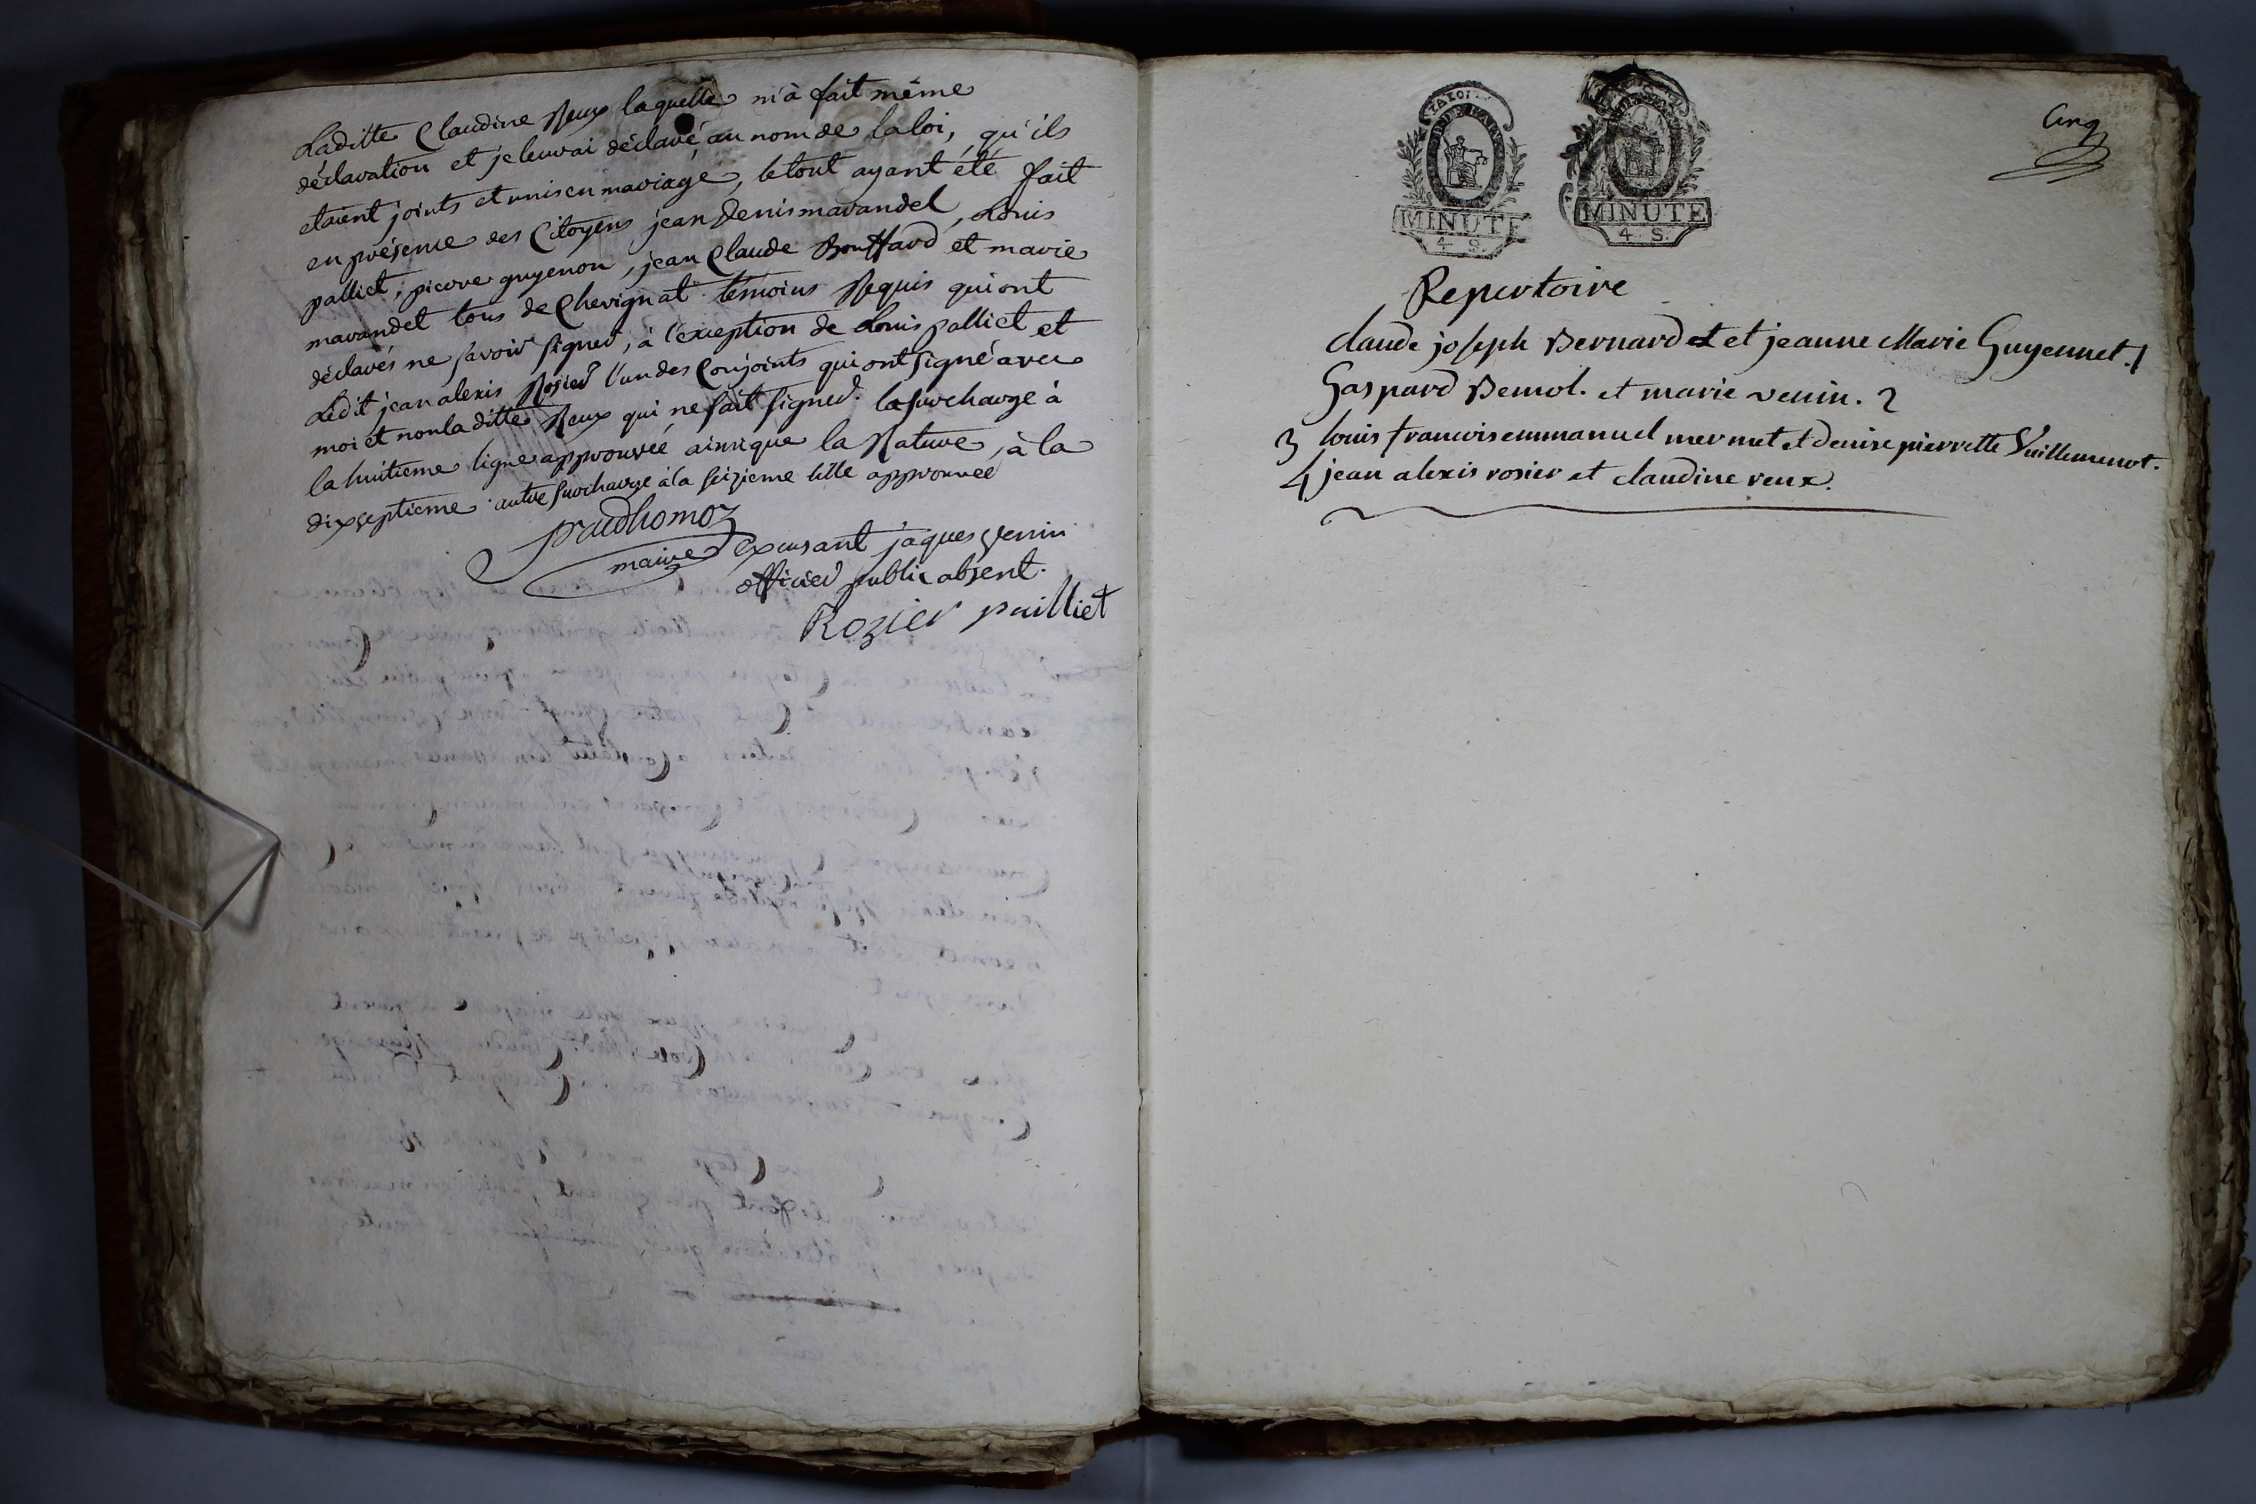 Laditte Claudine Reux laquelle m'à fait même
déclaration et je leurai déclaré, au nom de la loi, qu'ils
etaient joints et unis en mariage, le tout ayant été fait
en présence des Citoyens jean Denis marandet, Louis
palliet, pierre guyenon, jean Claude Bouffard et marie
marandet tous de Chevignat témoins Requis qui ont
déclarés ne savoir signer, à l'exception de Louis palliet et
Ledit jean alexis Rosier l'un des Conjoints qui ont signé avec
moi et non laditte Reux qui ne sait signer. la surcharge à
la huitieme ligne approuvée ainsi que la Rature, à la
dixseptieme autre surcharge à la seizieme approuvée
prudhomoz
maire Exersant jaques venin
officier public absent.
Rozier pailliet
MINUTE
4. S.
MINUTE
4. S.
Cinq
Repertoire
claude joseph Bernard et et jeanne Marie Guyennet. 1
Gaspard Bemol. et marie venin. 2
3 louis francois emmanuel mermet et denise pierrette Vuillemenot.
4 jean alexis rosier et claudine reux.